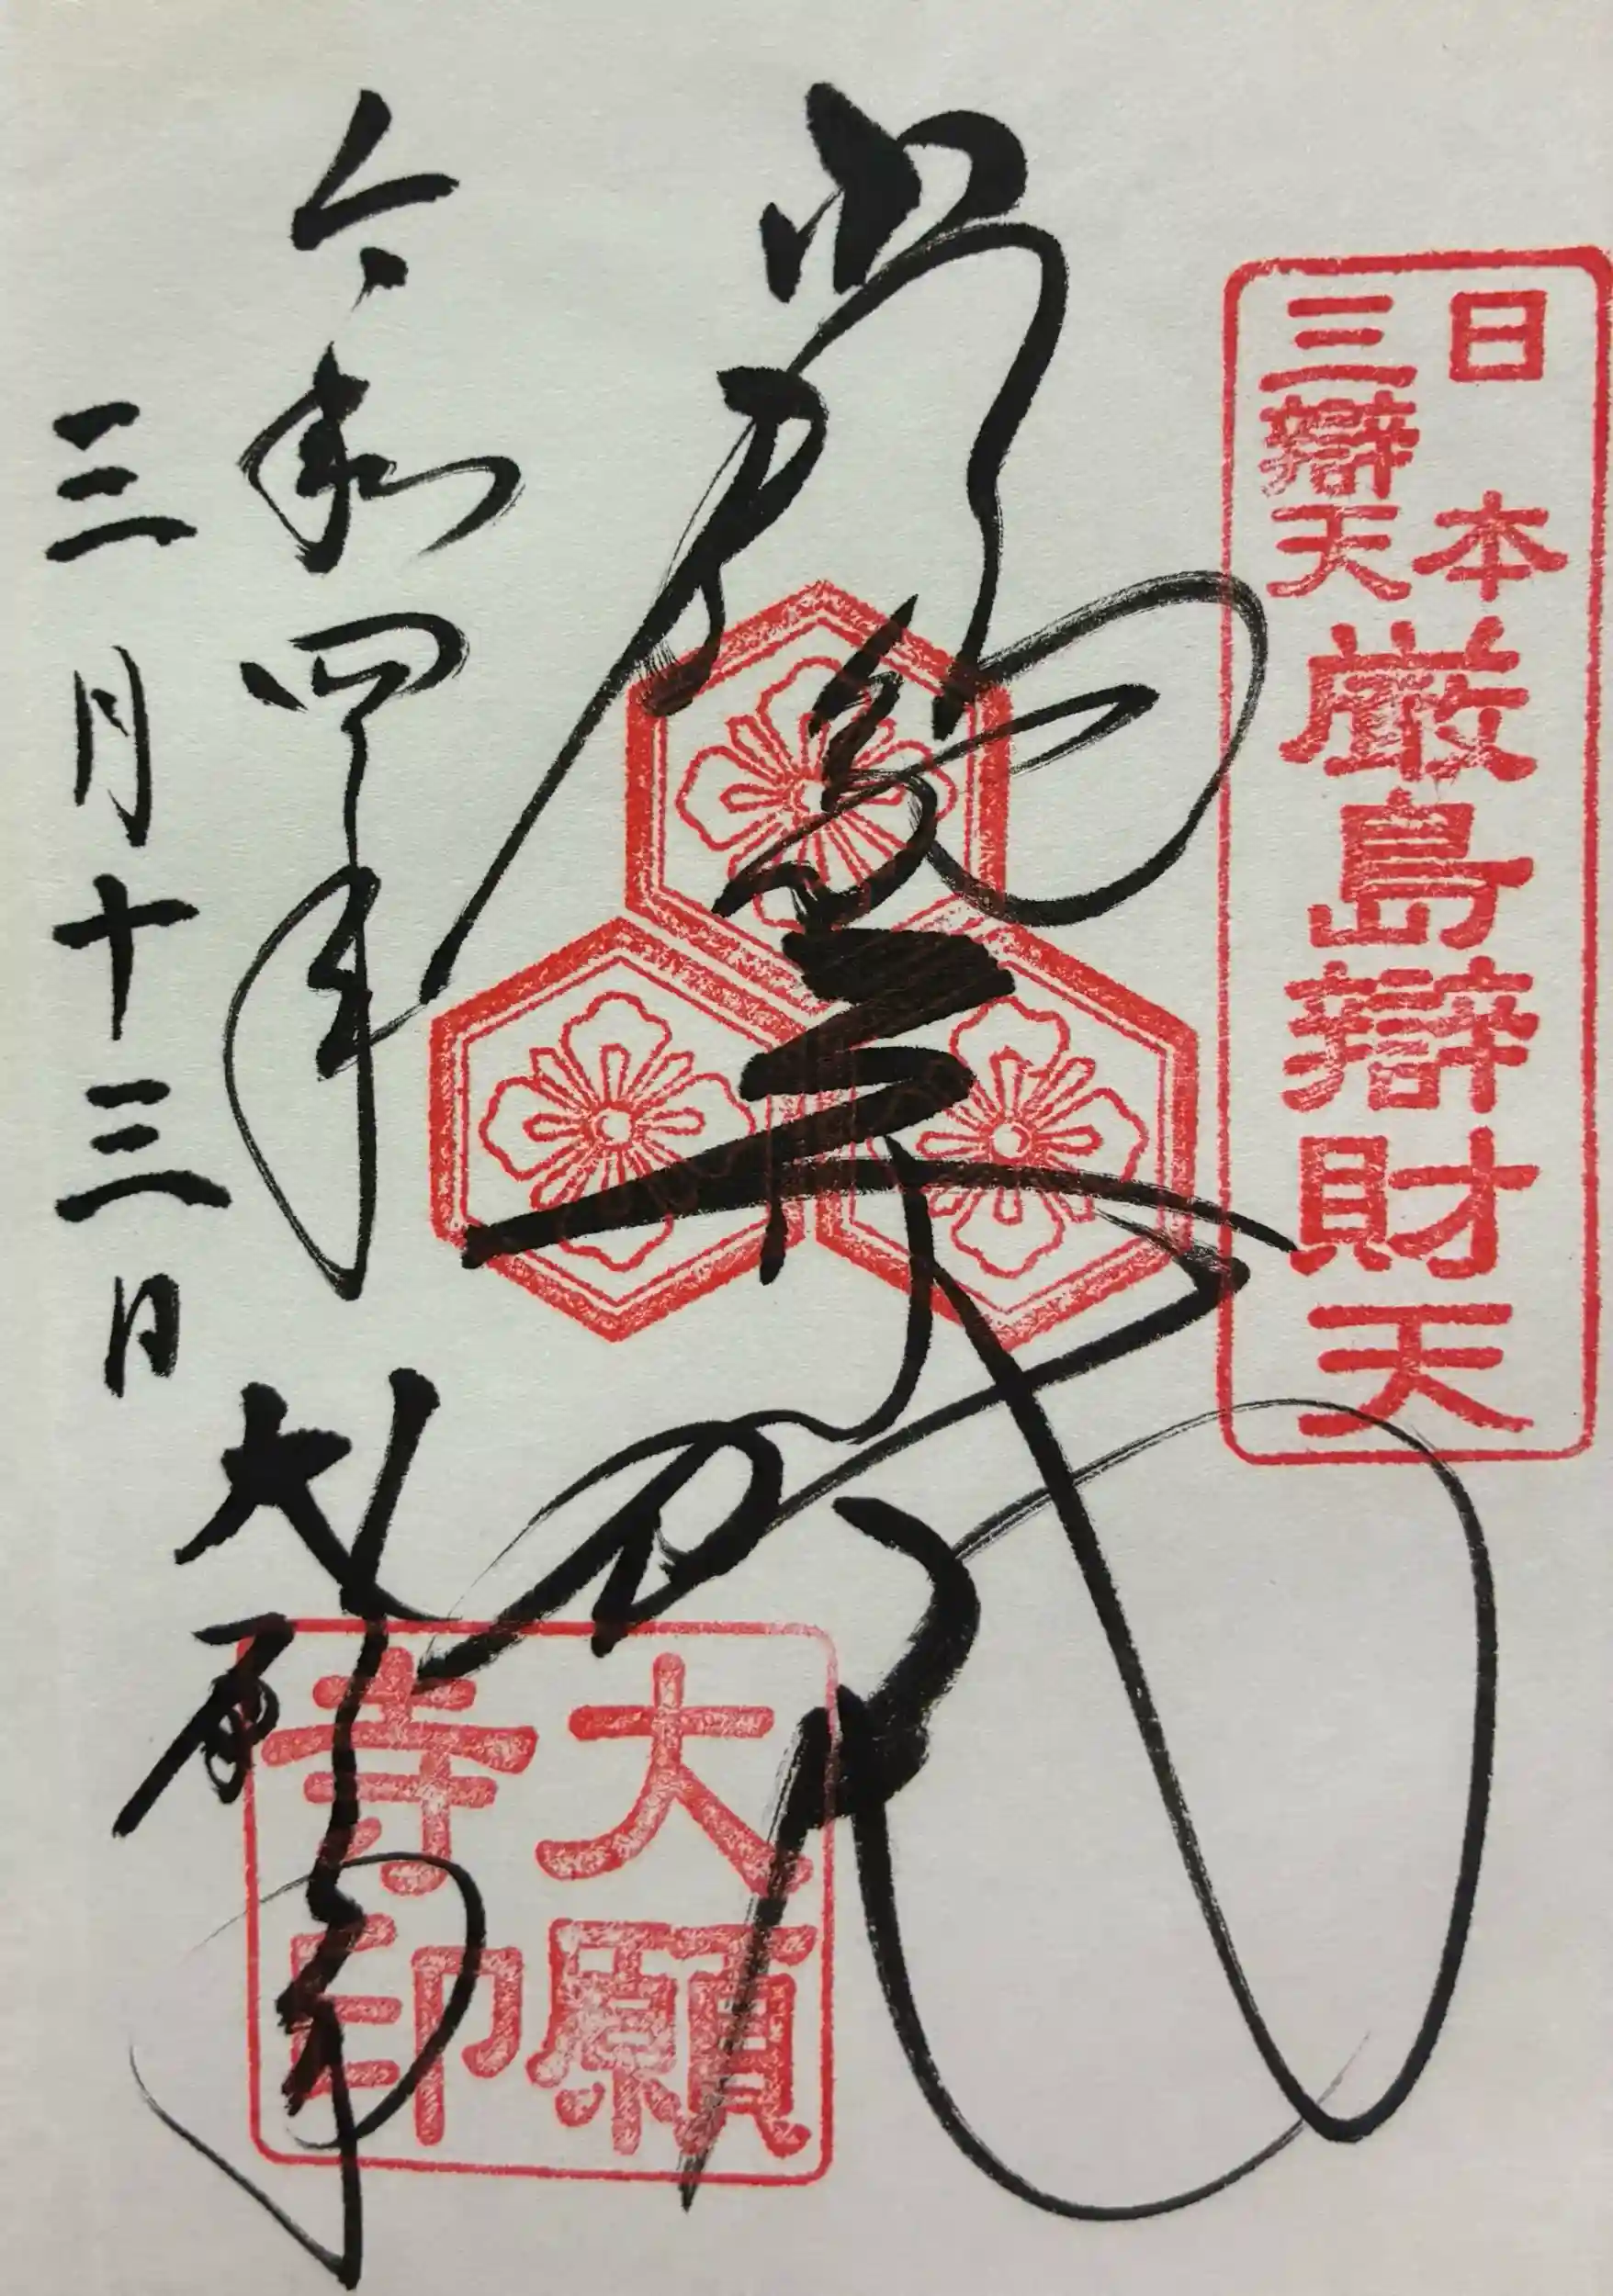 日本
三辯天
厳島辯財天
令和四年
三月十三日
大願寺
大願
寺印